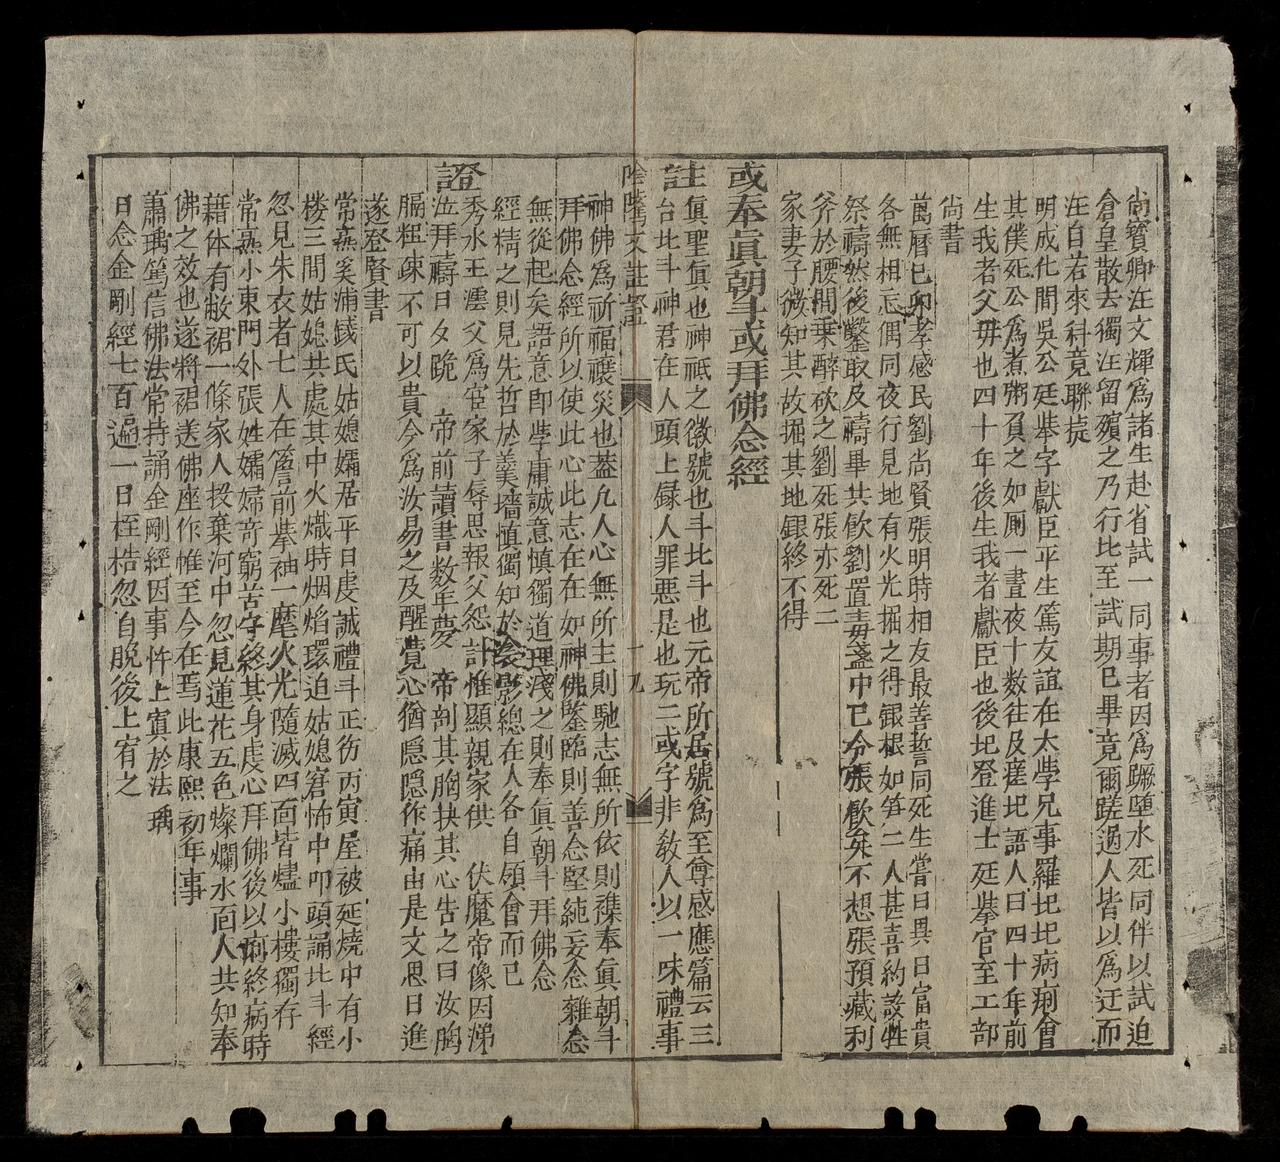 尚寶卿汪文輝爲諸生赴省試一同事者因爲蹶墮水死同伴以試迫
倉皇散去獨汪留殯之乃行比至試期已畢竟爾蹉過人皆以爲迂而
汪自若來科竟聯捷
明成化間吳公廷舉字獻臣平生篤友誼在太學兄事羅玘玘病痢會
其僕死公爲煮粥負之如厠一晝夜十數往及痊玘語人曰四十年前
生我者父毋也四十年後生我者獻臣也後玘登進士廷舉官至工部
尙書
萬曆巳卯孝感民劉尚賢張明時相友最善誓同死生嘗曰異日富貴
各無相忘偶同夜行見地有火光掘之得銀根如笋二人甚喜約設牲
祭禱然後鑿取及禱畢共飲劉置毒盞中已令張飲矣不想張預藏利
斧於腰間乗醉砍之劉死張亦死二
家妻子微知其故掘其地銀終不得
或奉眞朝斗或拜佛念經
註眞聖眞也神祇之徽號也斗北斗也元帝所居號爲至尊感應篇云三
台北斗神君在人頭上録人罪惡是也玩二或字非敎人以一味禮事
陰隲文註證 十九
神佛爲祈福禳災也蓋凡人心無所主則馳志無所依則襍奉眞朝斗
拜佛念經所以使此心此志在在如神佛鑒臨則善念堅純妄念雜念
無從起矣語意卽學庸誠意慎獨道理淺之則奉眞朝斗拜佛念
經精之則見先哲於羮墙慎獨知於衾影總在人各自領會而已
證秀水王澐父爲宦家子辱思報父怨計惟顯親家供 伏魔帝像因涕
泣拜禱日夕跪 帝前讀書数年夢 帝剖其胸抉其心吿之曰汝胸
膈粗疎不可以貴今爲汝易之及醒覺心猶隠隠作痛由是文思日進
遂登賢書
常熹奚浦錢氏姑媳孀居平日虔誠禮斗正彷丙寅屋被延燒中有小
楼三間姑媳共處其中火熾時烟焰環迫姑媳窘怖中叩頭誦北斗經
忽見朱衣者七人在簷前舉袖一麾火光隨滅四面皆燼小樓獨存
常熹小東門外張姓孀婦竒窮苦守終其身虔心拜佛後以痢終病時
藉体有敝裙一條家人投棄河中忽見蓮花五色燦爛水面人共知奉
佛之效也遂將裙送佛座作帷至今在焉此康熙初年事
蕭瑀篤信佛法常持誦金剛經因事忤上寘於法瑀
日念金剛經七百遍一日桎梏忽自脱後上宥之